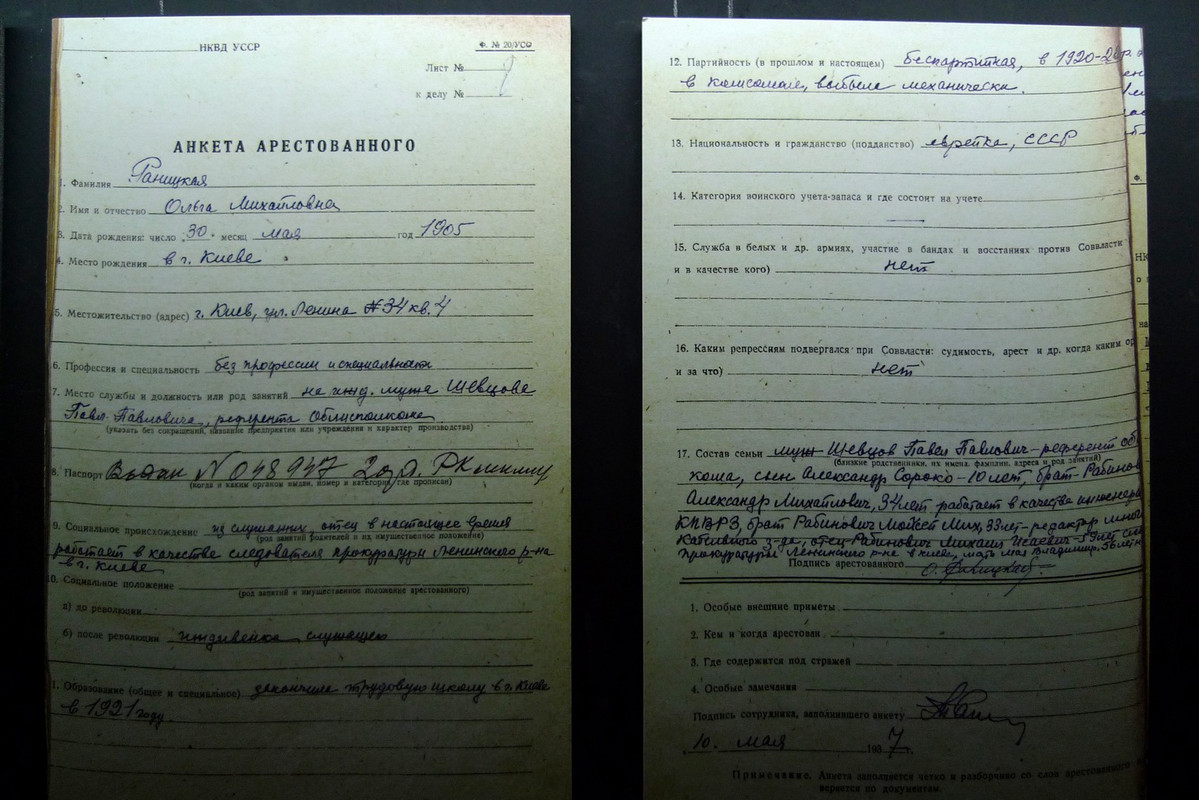 НКВД УССР
Ф. № 20/УСО
Лист №
к делу №
АНКЕТА АРЕСТОВАННОГО
1. Фамилия Раницкая
2. Имя и отчество Ольга Михайловна
3. Дата рождения: число „30" месяц мая год 1905
4. Место рождения в г. Киеве
5. Местожительство (адрес) г. Киев, ул. Ленина № 34 кв. 4
6. Профессия и специальность без профессии и специальности
7. Место службы и должность или род занятий на ижд. мужа Шевцова
Павла Павловича, референта Облисполкома
(указать без сокращений, название предприятия или учреждения и характер производства)
8. Паспорт Выдан № 048947
(когда и каким органом выдан, номер и категория, где прописан)
9. Социальное происхождение из служащих, отец в настоящее время
(род занятий родителей и их имущественное положение)
работает в качестве следователя прокуратуры Ленинского р-на
в г. Киеве
10. Социальное положение
(род занятий и имущественное положение арестованного)
а) до революции
б) после революции иждивенка, служащей
1. Образование (общее и специальное) закончила трудовую школу в г. Киеве
в 1921 году.
12. Партийность (в прошлом и настоящем) беспартийная, в 1920-2
в комсомоле, выбыла механически.
13. Национальность и гражданство (подданство) еврейка, СССР
14. Категория воинского учета-запаса и где состоит на учете
15. Служба в белых и др. армиях, участие в бандах и восстаниях против Соввласти
и в качестве кого) нет
16. Каким репрессиям подвергался при Соввласти: судимость, арест и др. когда каким ор
и за что) нет
17. Состав семьи муж Шевцов Павел Павлович - референт об
(близкие родственники, их имена, фамилии, адреса и род занятий)
кома, сын Александр Сороко - 10 лет, брат - Рабинов
Александр Михайлович, 34 лет работает в качестве инженера
КПВРЗ, брат Рабинович Моисей Мих, 33 лет - редактор много
Кабельного з-да, отец Рабинович Михаил Исаевич - 59 лет
прокуратуры Ленинского р-на в Киеве, мать Владимир. 56 лет
Подпись арестованного О. Раницкая
1. Особые внешние приметы
2. Кем и когда арестован
3. Где содержится под стражей
4. Особые замечания
Подпись сотрудника, заполнившего анкету
„10. мая 1937.
Примечание. Анкета заполняется четко и разборчиво со слов арестованного
веряется по документам.